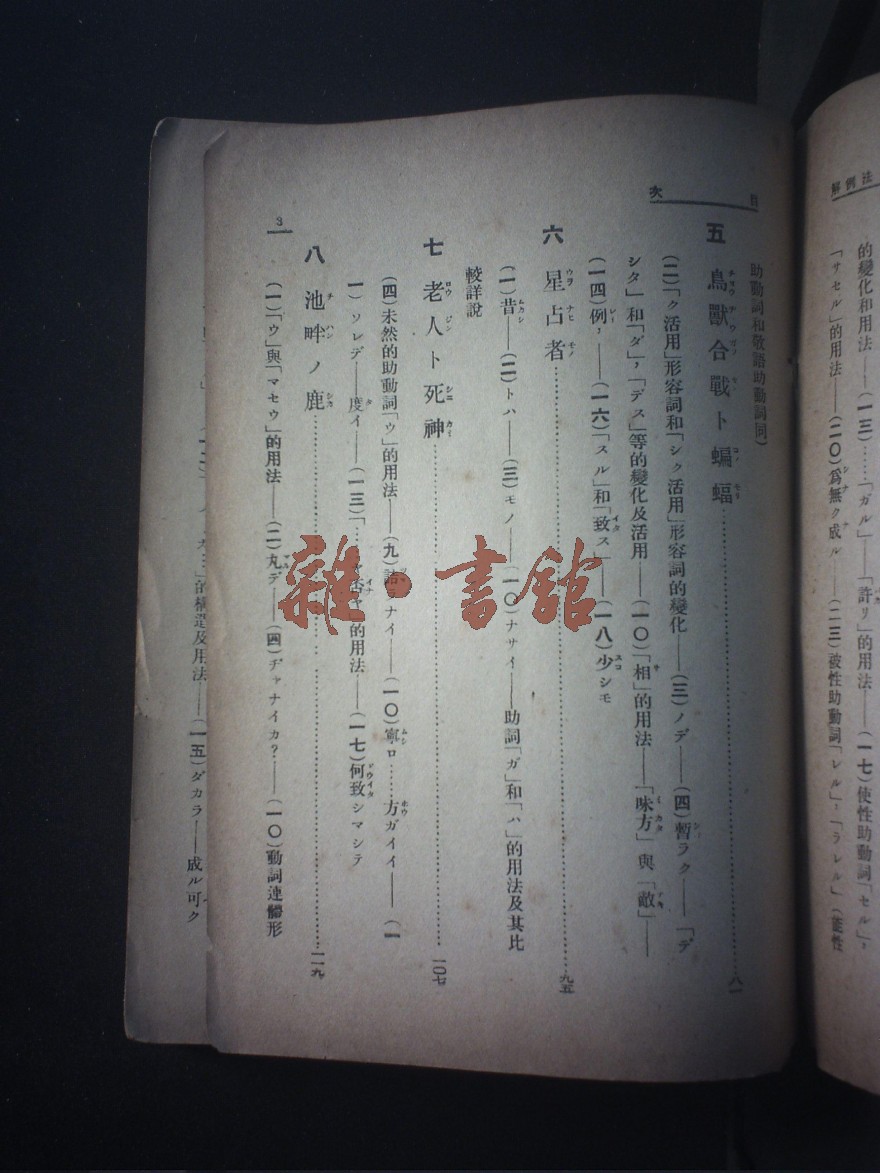 解例法
的變化和用法——(一三)……「ガル」——「許リ」的用法——(一七)使性助動詞「セル」,
「サセル」的用法——(二〇)爲無ク成ル (二三)被性助動詞「レル」,「ラレル」(能性
目次
助動詞和敬語助動詞同)
五 鳥獸合戰ト蝙蝠……八一
(二)「ク活用」形容詞和「シク活用」形容詞的變化——(三)ノデ——(四)暫ラク——「デ
シタ」和「ダ」,「デス」等的變化及活用——(一〇)「相」的用法——「味方」與「敵」——
(一四)例,——(一六)「スル」和「致ス」——(一八)少シモ
六 星占者……九五
(一)昔——(二)トハ——(三)モノ——(一〇)ナサイ——助詞「ガ」和「ハ」的用法及其比
較詳說
七 老人ト死神……一〇七
(四)未然的助動詞「ウ」的用法——(九)ナイ——(一〇)寧ロ……方ガイイ——(一
一)ソレデ——度イ——(一三)「 的用法——(一七)何致シマシテ
八 池畔ノ鹿……一一九
(一)「ウ」與「マセウ」的用法——(二)丸デ——(四)ヂャナイカ?——(一〇)動詞連體形
3
的構造及用法——(一五)ダカラ——成ル可ク
雜·書館